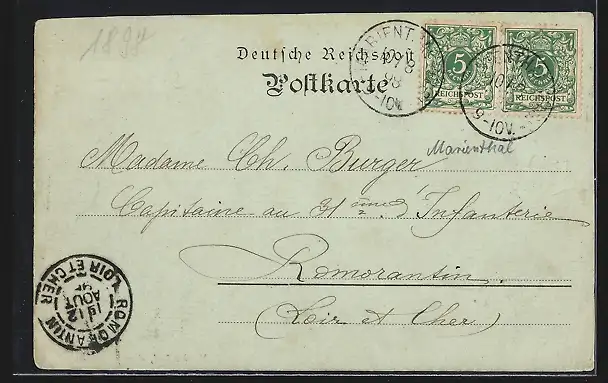 1898
Deutsche Reichspost
Postkarte
MARIENTHAL
10/8
98
9-10V.
5
REICHSPOST
5
REICHSPOST
MARIENTHAL
10/8
9-10V.
Marienthal
Madame Ch. Burger
Capitaine au 31ème d'Infanterie
Romorantin
(Loir et Cher)
ROMORANTIN
LOIR ET CHER
12
AOUT